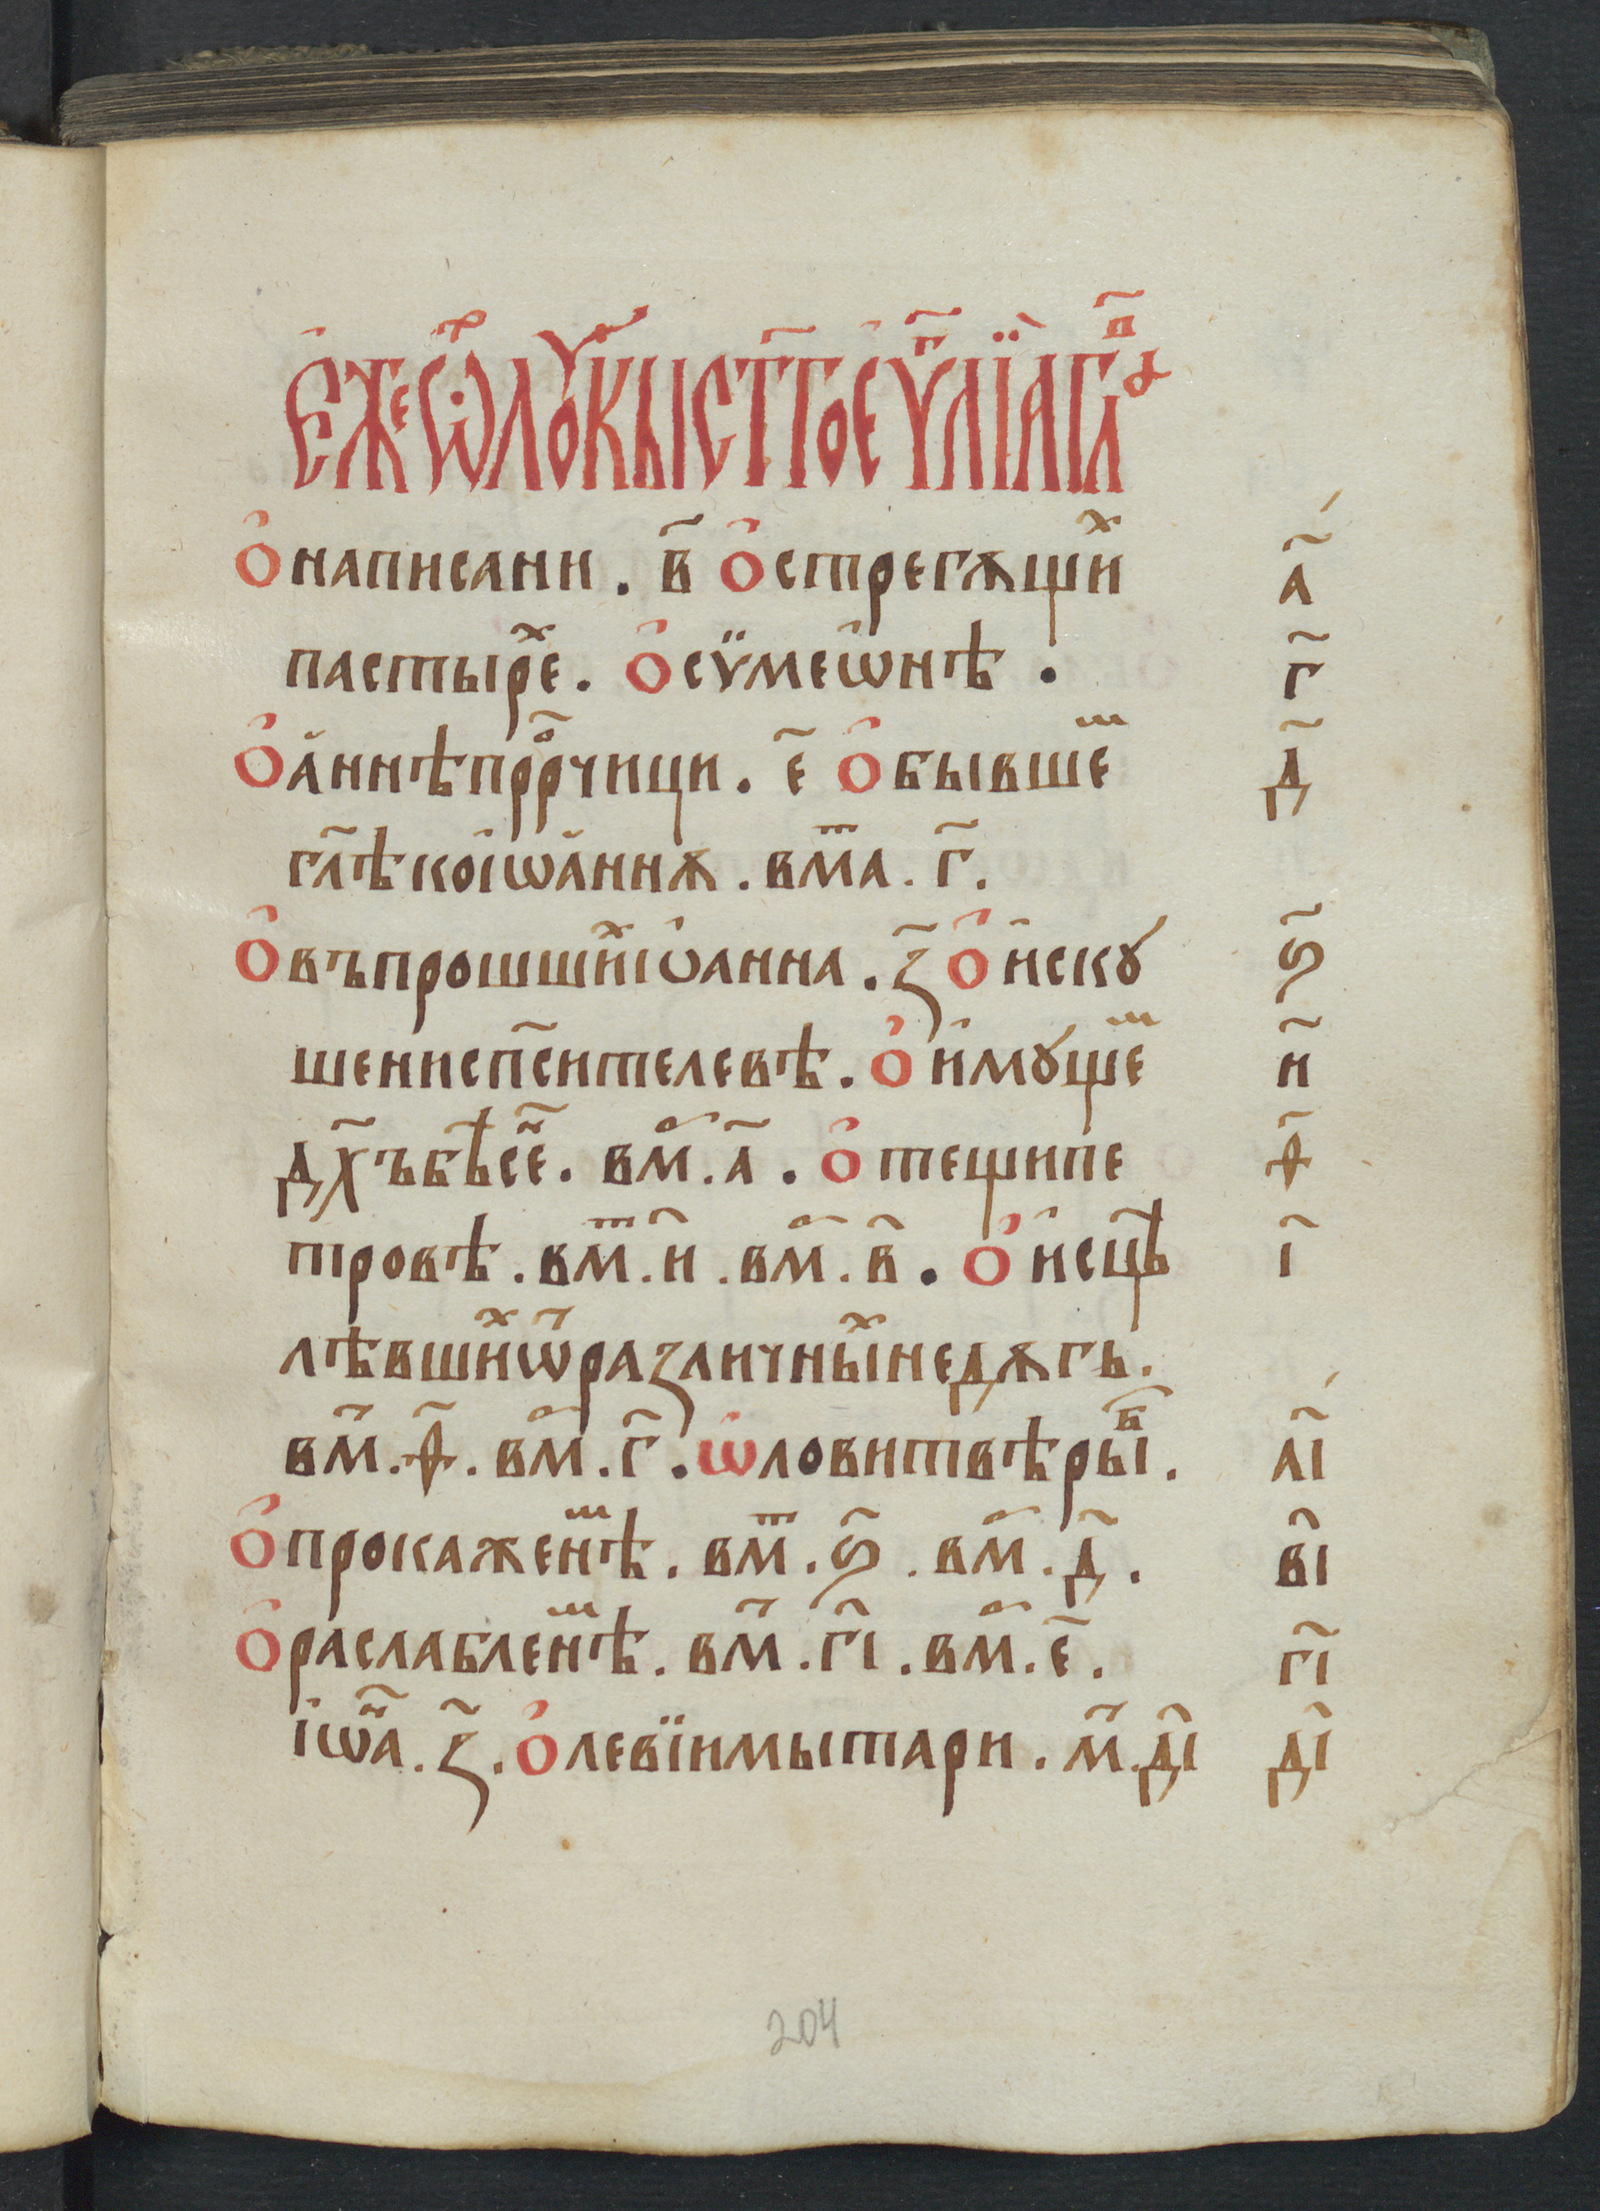 Є҆жеѿлꙋкыст҃гоєѵ҃лїаглⷡ҇ꙑ
О҆написани . в҃ О҆стрегѫщиⷯ а҃
пастыреⷯ . О҆сѷмеѡ҆нѣ . г҃
О҆а҆ннѣпрⷪ҇рчици . є҃ О҆бывшеⷨ д҃
гл҃ѣкоіѡа҆ннѫ . вмⷮа . г҃ .
О҆въпрошшиⷯіѡ҆анна . з҃ О҆и҆скꙋ ѕ҃
шениспⷭ҇ителевѣ . О҆и҆мꙋщеⷨ и҃
дх҃ъбѣсеⷩ . вмⷬ . а҃ . О҆тещипе ѳ҃
тровѣ . вмⷮ . и҃ . вмⷬ . в҃ . О҆и҆сцѣ і҃
лѣвшиⷯѿразличныⷯнедѫгь .
вмⷮ . ѳ҃ . вмⷬ . г҃ . ѡ҆ловитвѣрыⷠ . а҃і
О҆прокаженⷩѣ . вмⷮ . ѕ҃ . вмⷬ . д҃ . в҃і
О҆раслабленⷩѣ . вмⷮ . г҃і . вмⷬ . є҃ . г҃і
іѡⷩ҇а . з҃ . О҆левїимытари . мⷮ . д҃і д҃і
204